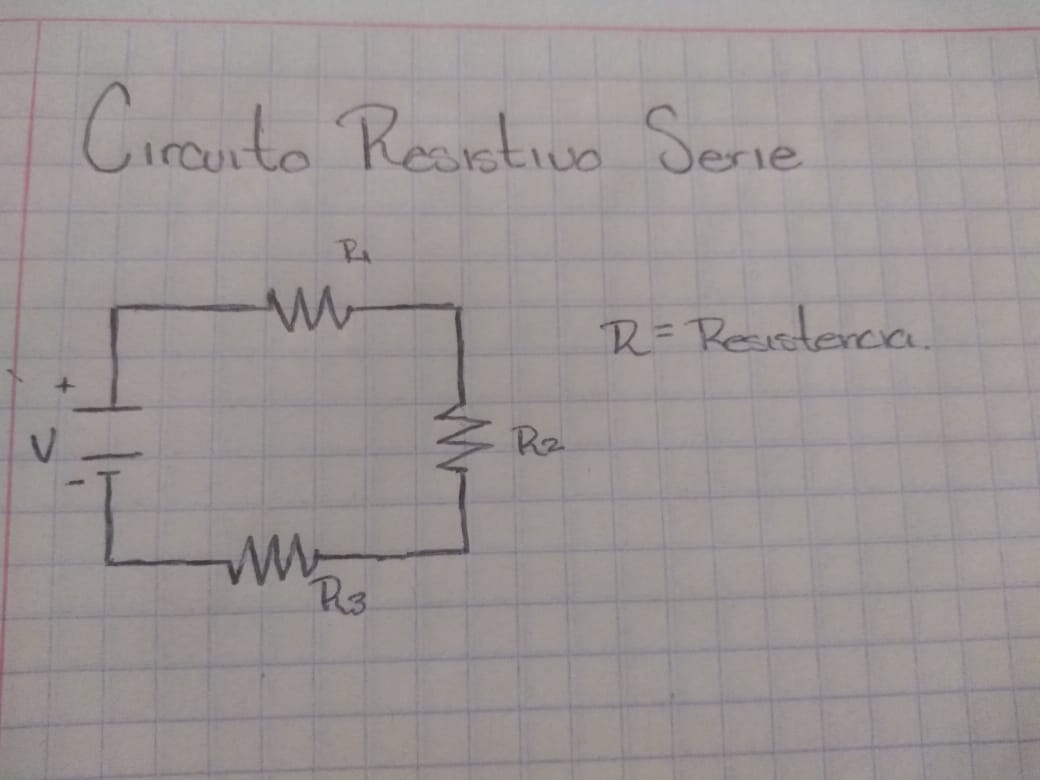 Circuito Resistivo Serie
R1
R = Resistencia.
+
V
R2
-
R3